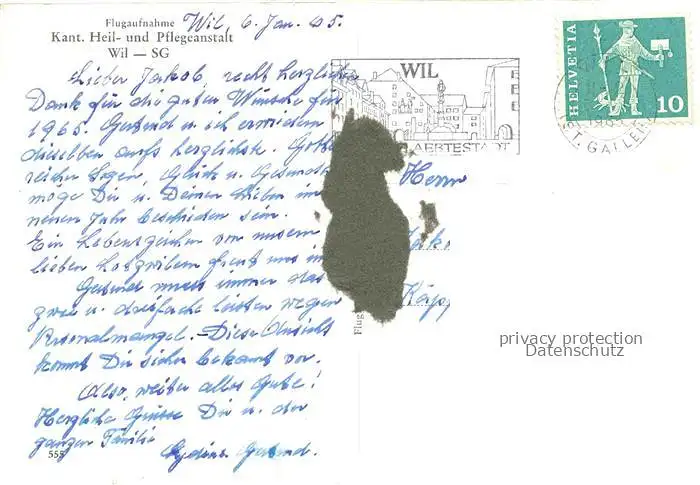 Flugaufnahme
Kant. Heil- und Pflegeanstalt
Wil — SG
Wil, 6. Jan. 65.
Lieber Jakob, recht herzlichen
Dank für die guten Wünsche für
1965. Gertrud u. ich erwiedern
dieselben aufs herzlichste. Gottes
reichen Segen, Glück u. Gesundheit
möge Dir u. Deinen Lieben im
neuen Jahr beschieden sein.
Ein Lebenszeichen von unsern
lieben freut uns
Gertrud muss immer das
zwei u. dreifache leisten wegen
Personalmangel. - Diese Ansicht
kommt Dir sicher bekannt vor.
Also, weiter alles Gute!
Herzliche Grüsse Dir u. der
ganzen Familie
Gertrud.
555
WIL
AEBTESTADT
HELVETIA
10
ST. GALLEN
Herrn
Jako
Käpp
Flug
privacy protection
Datenschutz